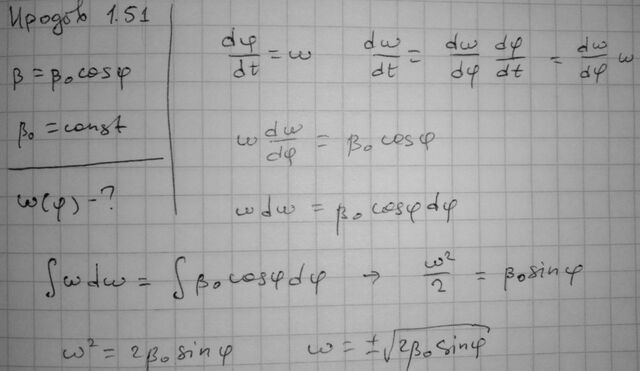 Иродов 1.51
β = β₀cosφ
β₀ = const
ω(φ) - ?
dφ/dt = ω    dω/dt = dω/dφ dφ/dt = dω/dφ ω
ω dω/dφ = β₀ cosφ
ω dω = β₀ cosφ dφ
∫ω dω = ∫β₀ cosφ dφ → ω²/2 = β₀ sinφ
ω² = 2β₀ sinφ    ω = ±√(2β₀ sinφ)